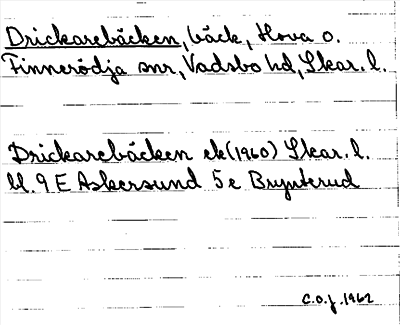 Drickarebäcken, bäck, Hova o.
Finnerödja snr, Vadsbo hd, Skar. l.
Drickarebäcken ek (1960) Skar. l.
bl. 9 E Askersund 5 e Brynterud
C.O.J. 1962